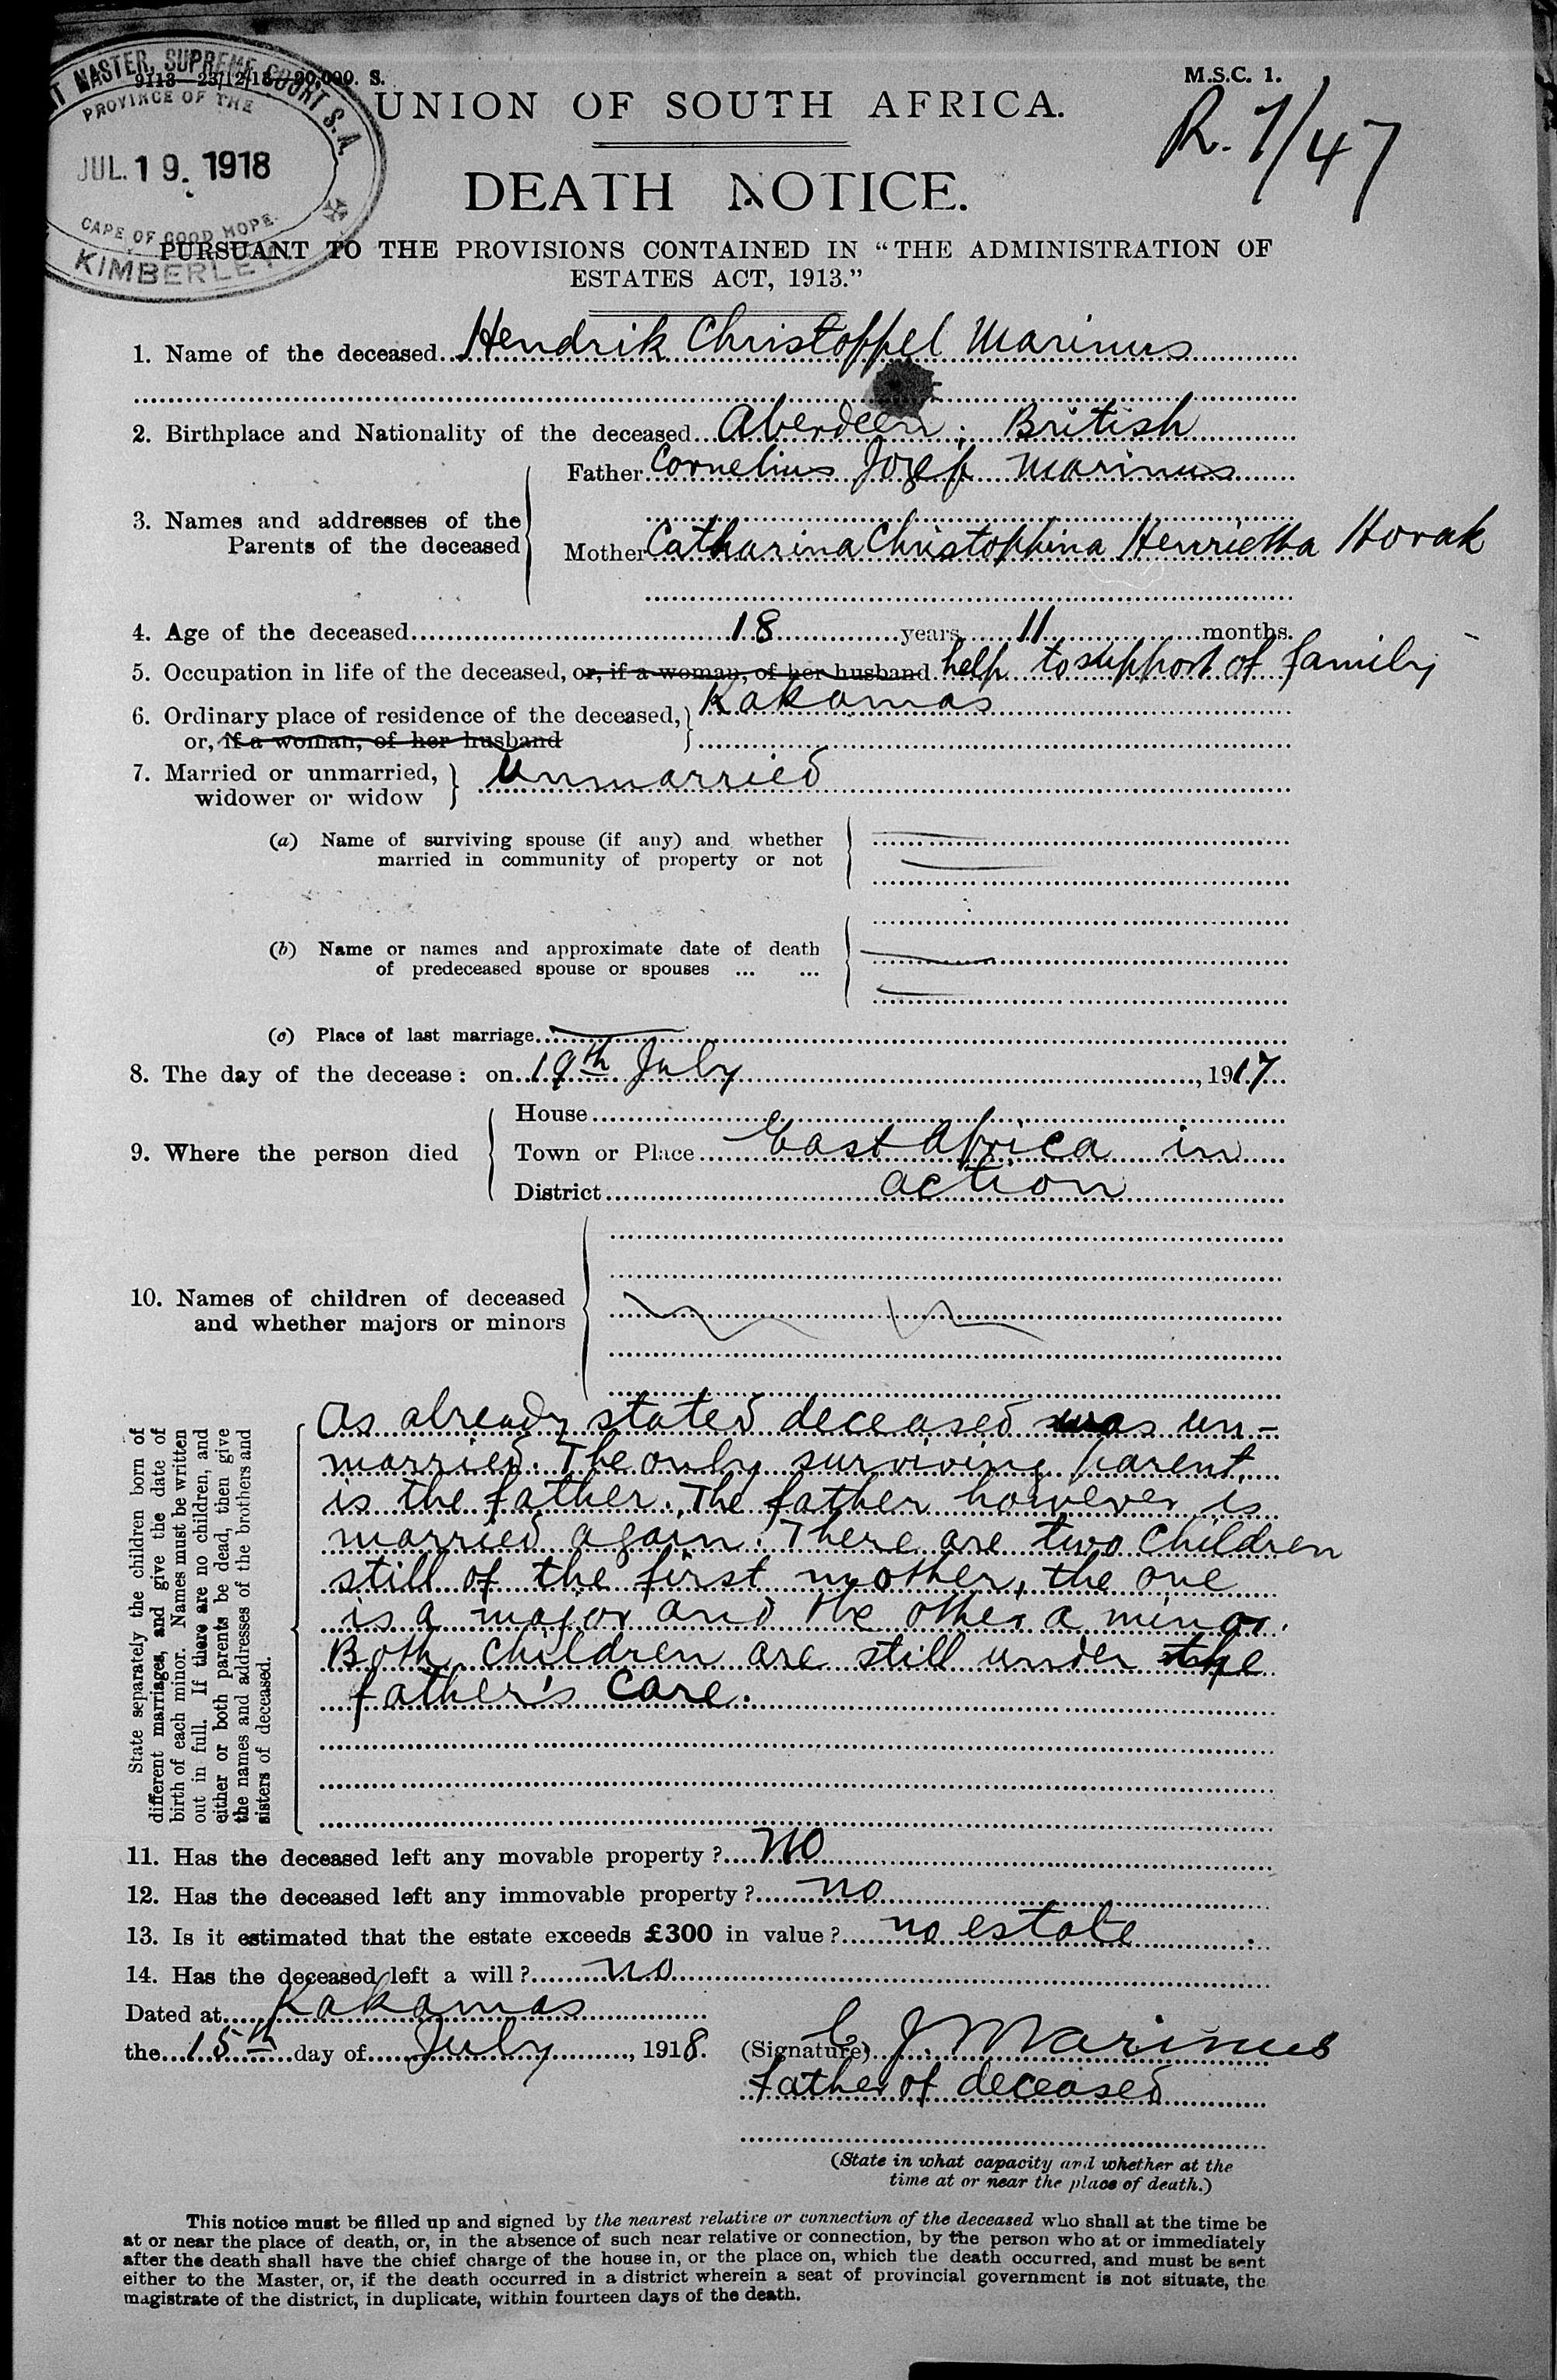 ASSISTANT MASTER, SUPREME COURT S.A.
PROVINCE OF THE
JUL. 19. 1918
CAPE OF GOOD HOPE.
KIMBERLEY
9113—23/12/13—20,000. S.
M.S.C. 1.
R. 7/47
UNION OF SOUTH AFRICA.
DEATH NOTICE.
PURSUANT TO THE PROVISIONS CONTAINED IN “THE ADMINISTRATION OF
ESTATES ACT, 1913.”
1. Name of the deceased Hendrik Christoffel Marinus
2. Birthplace and Nationality of the deceased Aberdeen; British
3. Names and addresses of the Parents of the deceased
Father Cornelius Jozef Marinus
Mother Catharina Christophina Henrietta Horak
4. Age of the deceased 18 years 11 months.
5. Occupation in life of the deceased, or, if a woman, of her husband help to support of family
6. Ordinary place of residence of the deceased, Kakamas
or, if a woman, of her husband
7. Married or unmarried, Unmarried
widower or widow
(a) Name of surviving spouse (if any) and whether
married in community of property or not
(b) Name or names and approximate date of death
of predeceased spouse or spouses ... ...
(c) Place of last marriage
8. The day of the decease: on 19th July, 1917
9. Where the person died
House
Town or Place East Africa in
District action
10. Names of children of deceased
and whether majors or minors
State separately the children born of
different marriages, and give the date of
birth of each minor. Names must be written
out in full. If there are no children, and
either or both parents be dead, then give
the names and addresses of the brothers and
sisters of deceased.
As already stated deceased was un-
married. The only surviving parent
is the father. The father however is
married again. There are two children
still of the first mother, the one
is a major and the other a minor.
Both children are still under the
father's care.
11. Has the deceased left any movable property? No
12. Has the deceased left any immovable property? no
13. Is it estimated that the estate exceeds £300 in value? no estate
14. Has the deceased left a will? no
Dated at Kakamas
the 15th day of July, 1918.
(Signature) C J Marinus
father of deceased
(State in what capacity and whether at the
time at or near the place of death.)
This notice must be filled up and signed by the nearest relative or connection of the deceased who shall at the time be
at or near the place of death, or, in the absence of such near relative or connection, by the person who at or immediately
after the death shall have the chief charge of the house in, or the place on, which the death occurred, and must be sent
either to the Master, or, if the death occurred in a district wherein a seat of provincial government is not situate, the
magistrate of the district, in duplicate, within fourteen days of the death.